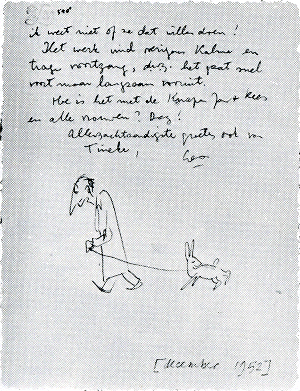 ik weet niet of ze dat willen doen!
Het werk vind overigens Kalme en
trage voortgang, d.w.z. het gaat snel
voort maar langzaam vooruit.
Hoe is het met de Jan + Kees
en alle vrouwen? Dag!
Allerzachtaardigste groeten ook van
Tineke,
Leo
[december 1952]